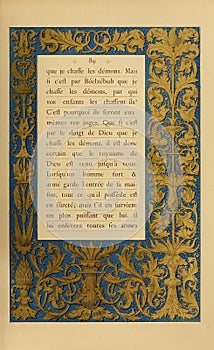 89
que je chasse les démons. Mais
si c'est par Béelzébub que je
chasse les démons, par qui
vos enfants les chassent-ils?
C'est pourquoi ils seront eux-
mêmes vos juges. Que si c'est
par le doigt de Dieu que je
chasse les démons, il est donc
certain que le royaume de
Dieu est venu jusqu'à vous.
Lorsqu'un homme fort &
armé garde l'entrée de sa mai-
son, tout ce qu'il possède est
en sûreté; mais s'il en survient
un plus puissant que lui, il
lui enlèvera toutes ses armes